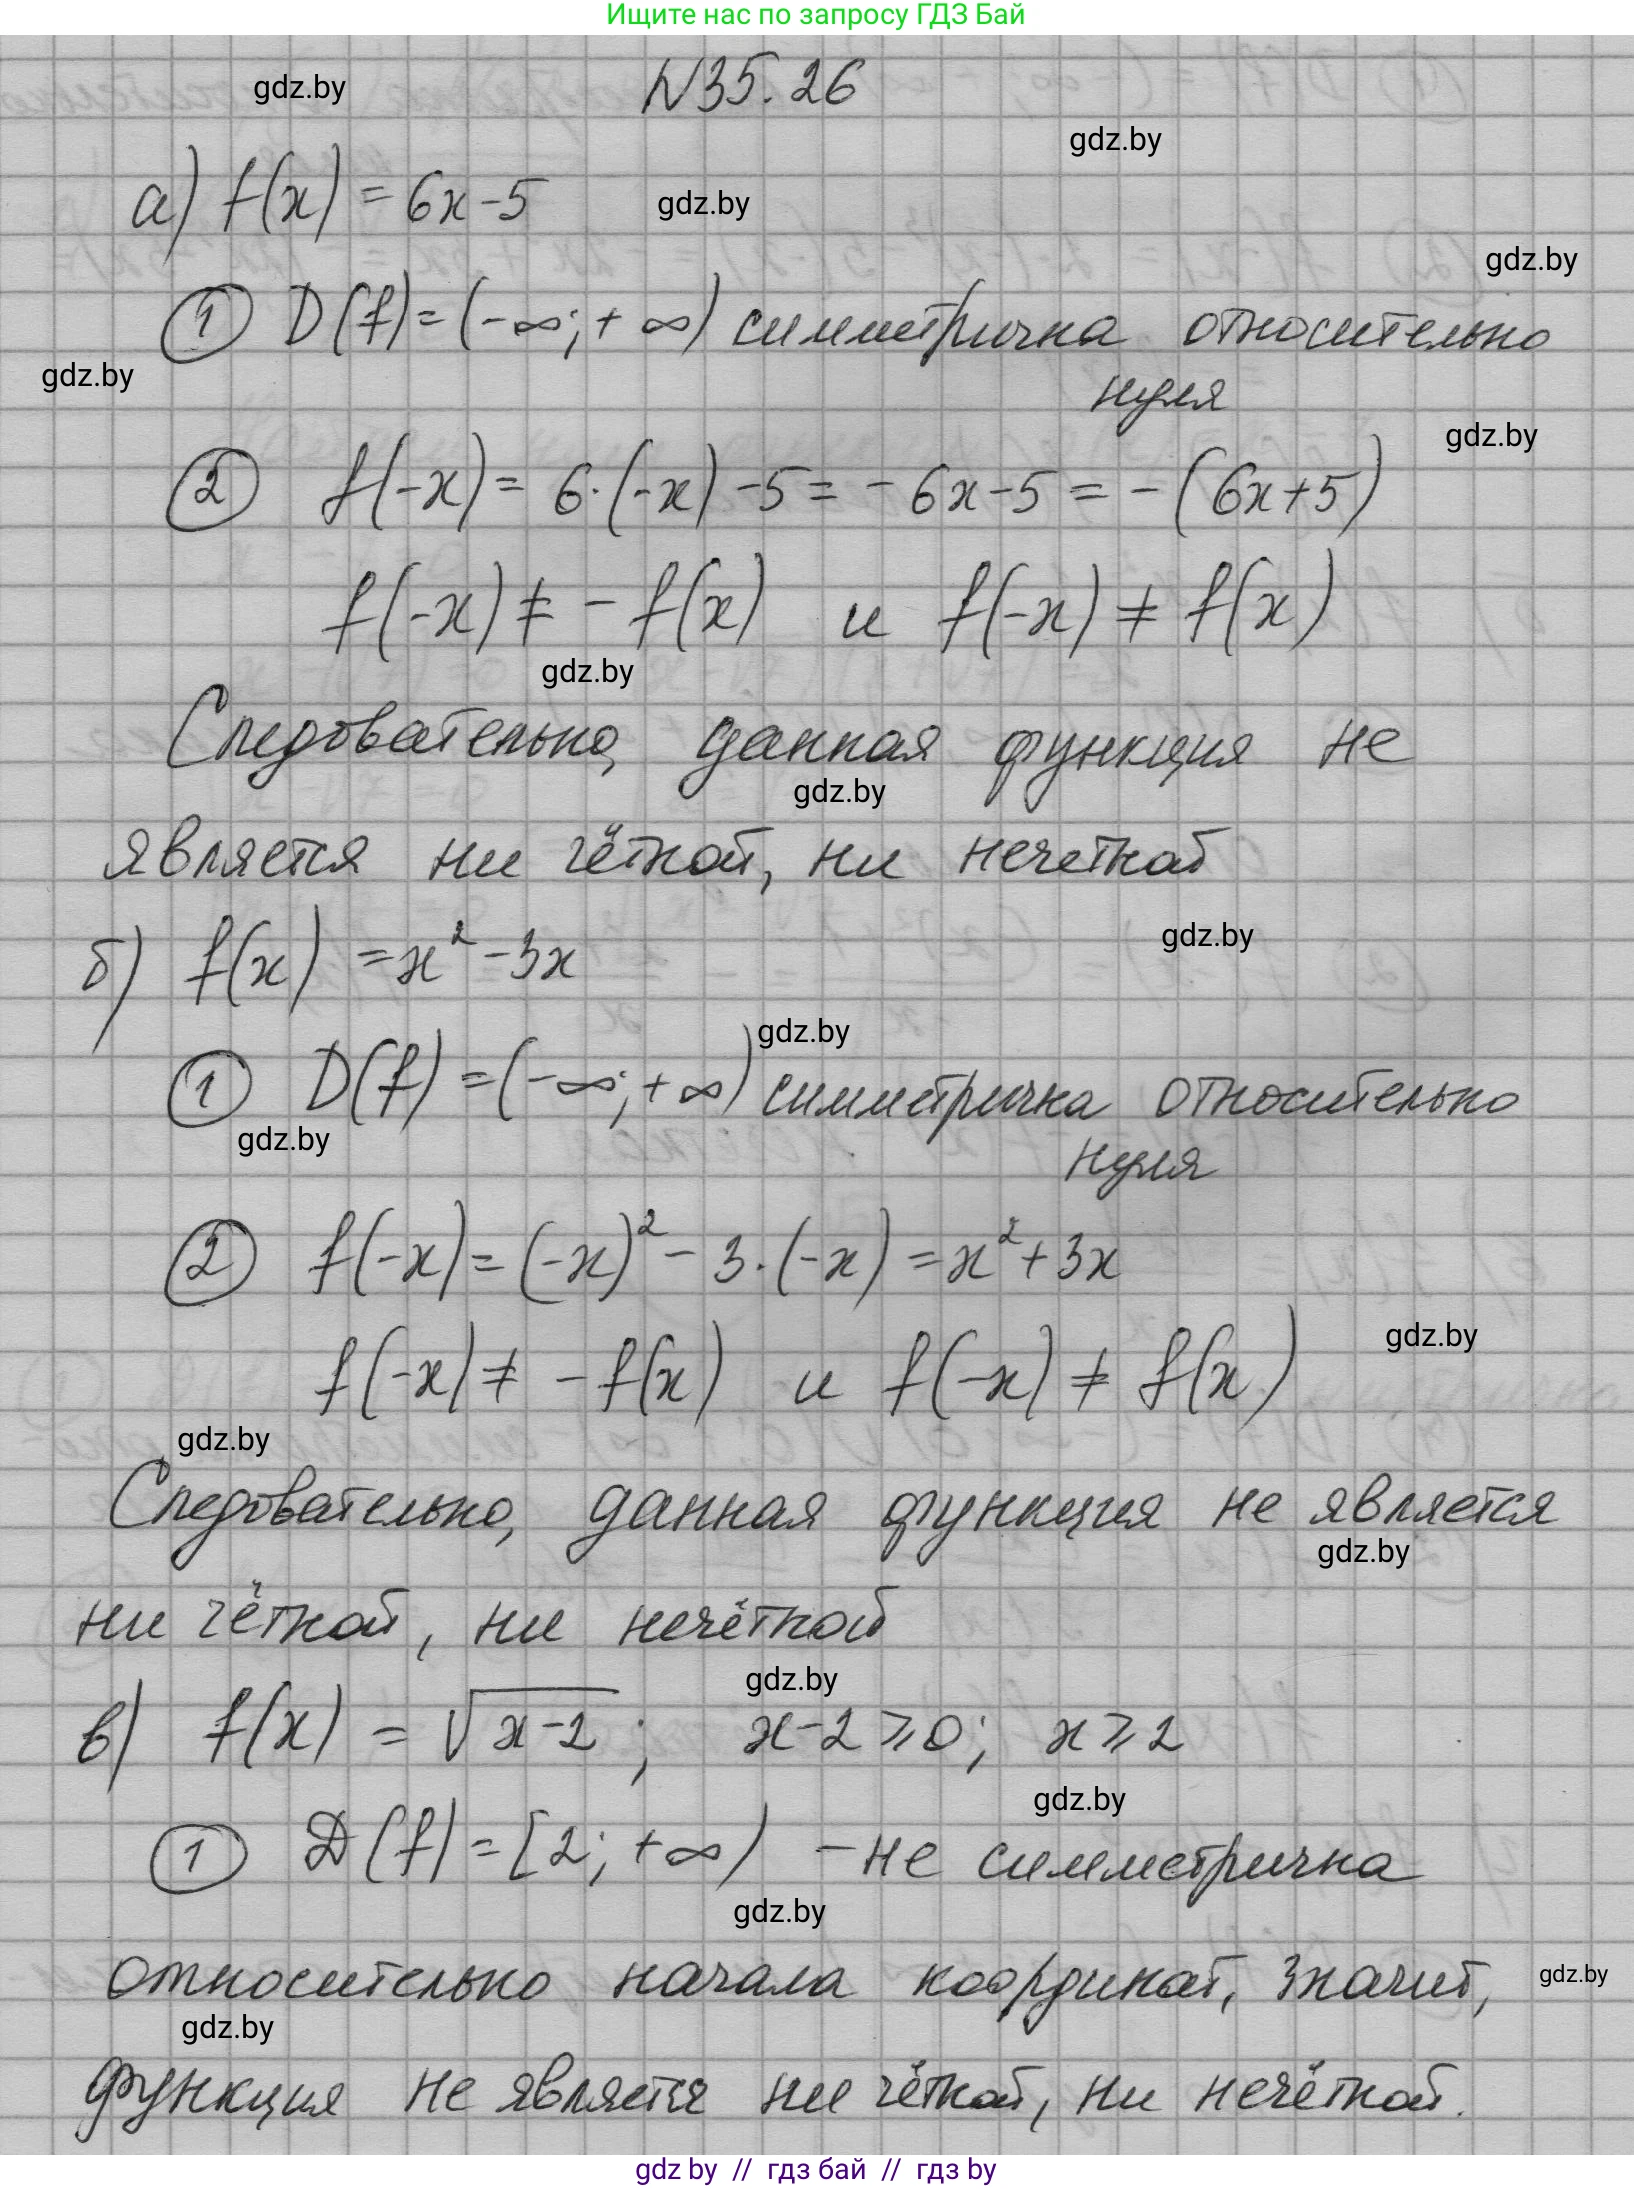 Ищите нас по запросу ГДЗ Бай
gdz.by
N35.26
gdz.by
а) f(x) = 6x-5
gdz.by
gdz.by
① D(f)=(-∞;+∞) симметрична относительно
нуля
gdz.by
gdz.by
② f(-x) = 6·(-x)-5 = -6x-5 = -(6x+5)
f(-x) ≠ -f(x) и f(-x) ≠ f(x)
gdz.by
Следовательно, данная функция не
gdz.by
является ни чётной, ни нечетной
gdz.by
б) f(x) = x²-3x
gdz.by
① D(f) = (-∞;+∞) симметрична относительно
нуля
gdz.by
② f(-x) = (-x)² - 3·(-x) = x²+3x
gdz.by
f(-x) ≠ -f(x) и f(-x) ≠ f(x)
gdz.by
Следовательно, данная функция не является
gdz.by
ни чётной, ни нечётной
gdz.by
в) f(x) = √x-2; x-2≥0; x≥2
gdz.by
① D(f)=[2;+∞) - не симметрична
gdz.by
относительно начала координат, значит,
gdz.by
gdz.by
функция не является ни чётной, ни нечётной.
gdz by // гдз бай // gdz by